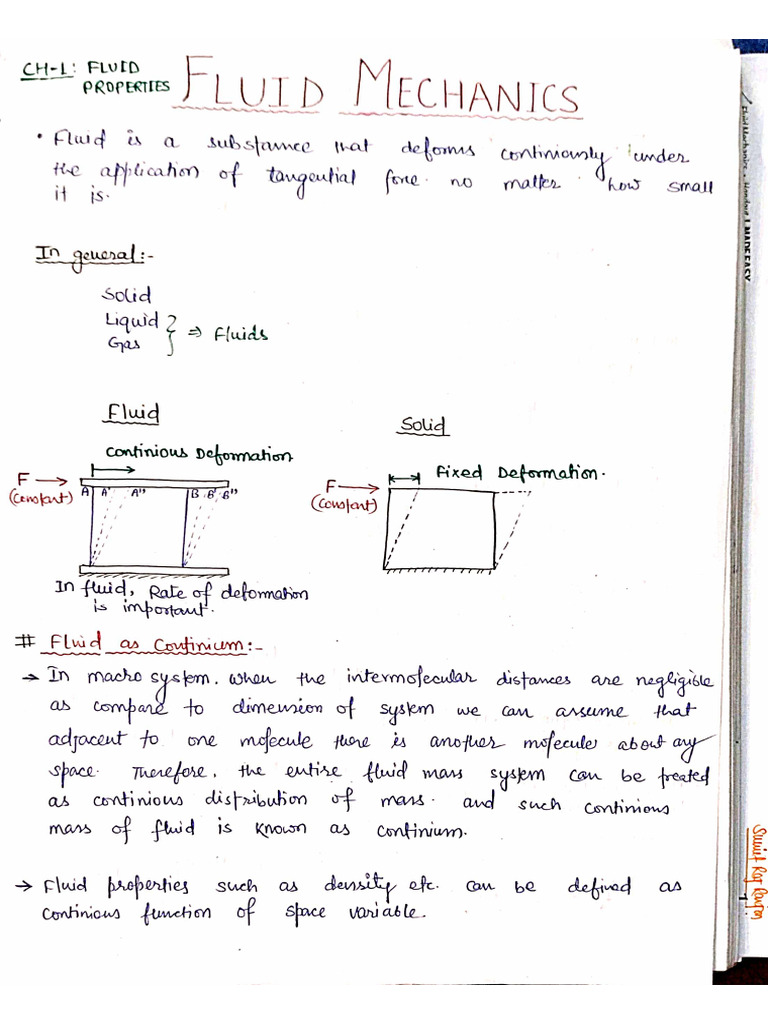 CH-1: FLUID
PROPERTIES
FLUID MECHANICS
• Fluid is a substance that deforms continiously under
the application of tangential force no matter how small
it is.
In general:-
Solid
Liquid
Gas
} ⇒ Fluids
Fluid
Continious Deformation
F →
(constant)
A A' A" B B' B"
In fluid, Rate of deformation
is important.
Solid
Fixed Deformation.
F →
(constant)
# Fluid as Continium:-
→ In macro system, when the intermolecular distances are negligible
as compare to dimension of system we can assume that
adjacent to one molecule there is another molecule about any
space. Therefore, the entire fluid mass system can be treated
as continious distribution of mass. and such continious
mass of fluid is known as continium.
→ Fluid properties such as density etc. can be defined as
continious function of space variable.
Fluid Mechanics • Handout | MADE EASY